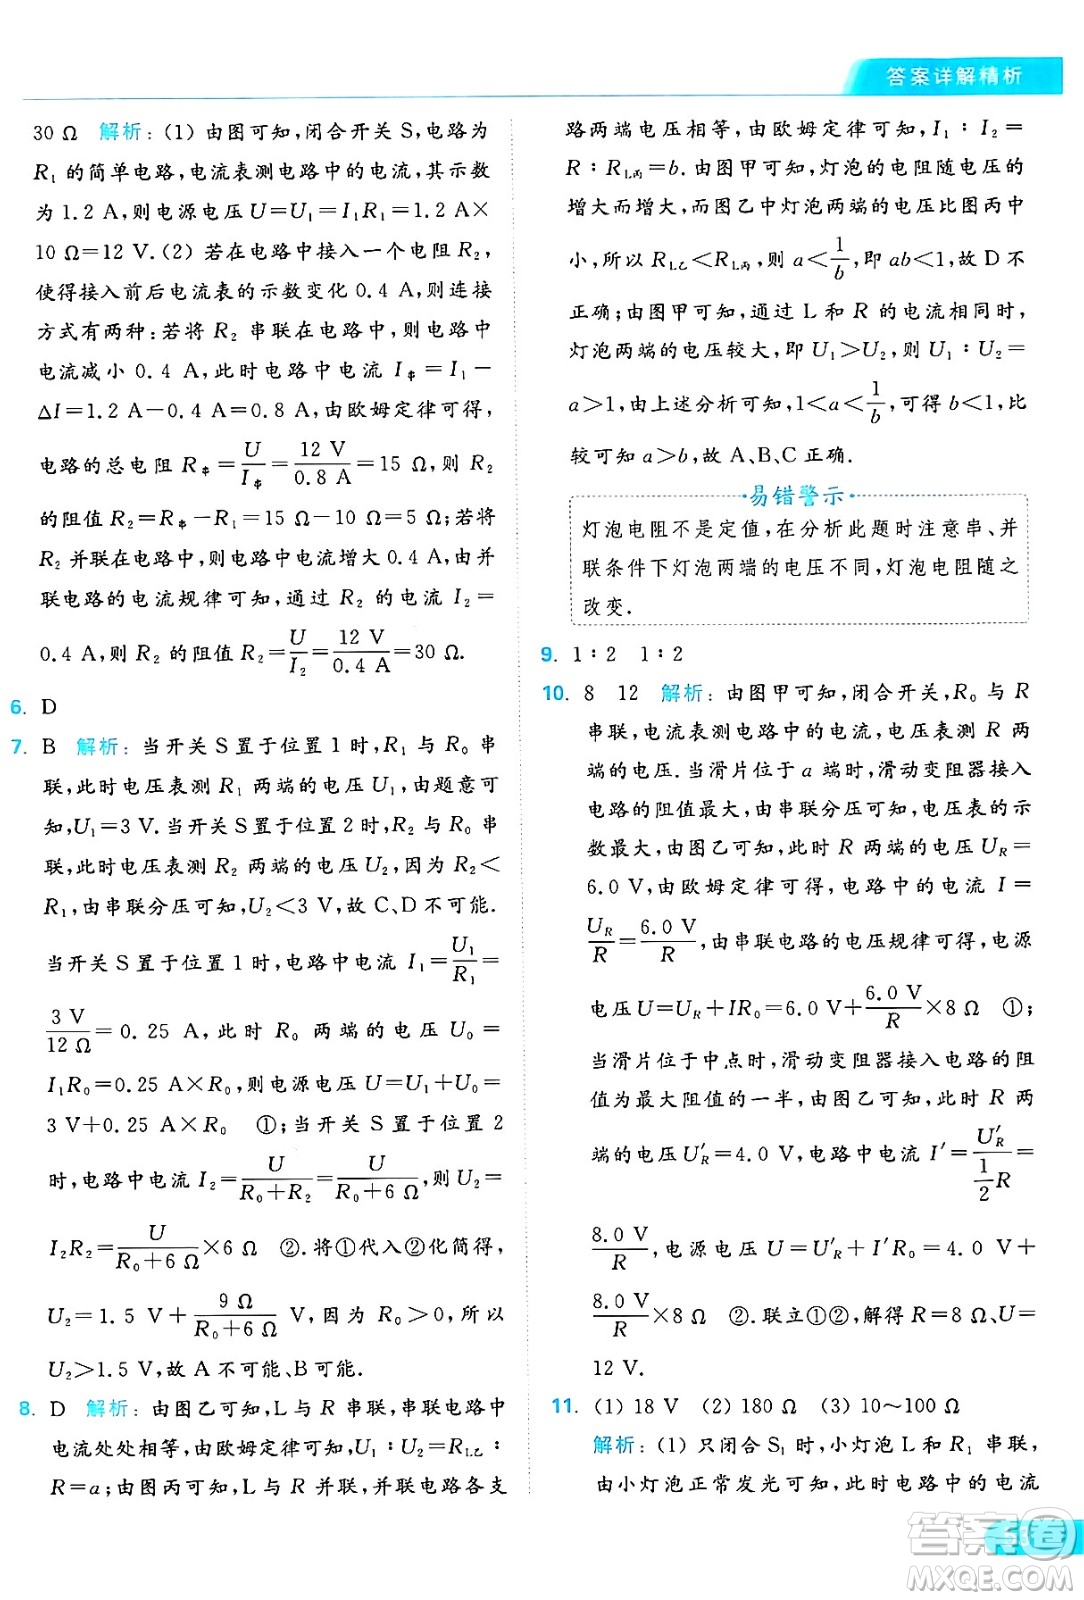 答案详解精析
30 Ω 解析:(1) 由图可知,闭合开关 S,电路为
R₁ 的简单电路,电流表测电路中的电流,其示数
为 1.2 A,则电源电压 U=U₁=I₁R₁=1.2 A×
10 Ω=12 V.(2) 若在电路中接入一个电阻 R₂,
使得接入前后电流表的示数变化 0.4 A,则连接
方式有两种:若将 R₂ 串联在电路中,则电路中
电流减小 0.4 A,此时电路中电流 I串=I₁-
ΔI=1.2 A-0.4 A=0.8 A,由欧姆定律可得,
电路的总电阻 R串=U/I串=12 V/0.8 A=15 Ω,则 R₂
的阻值 R₂=R串-R₁=15 Ω-10 Ω=5 Ω;若将
R₂ 并联在电路中,则电路中电流增大 0.4 A,由并
联电路的电流规律可知,通过 R₂ 的电流 I₂=
0.4 A,则 R₂ 的阻值 R₂=U/I₂=12 V/0.4 A=30 Ω.
6. D
7. B 解析:当开关 S 置于位置 1 时,R₁ 与 R₀ 串
联,此时电压表测 R₁ 两端的电压 U₁,由题意可
知,U₁=3 V.当开关 S 置于位置 2 时,R₂ 与 R₀ 串
联,此时电压表测 R₂ 两端的电压 U₂,因为 R₂<
R₁,由串联分压可知,U₂<3 V,故 C、D 不可能.
当开关 S 置于位置 1 时,电路中电流 I₁=U₁/R₁=
3 V/12 Ω=0.25 A,此时 R₀ 两端的电压 U₀=
I₁R₀=0.25 A×R₀,则电源电压 U=U₁+U₀=
3 V+0.25 A×R₀ ①;当开关 S 置于位置 2
时,电路中电流 I₂=U/(R₀+R₂)=U/(R₀+6 Ω),则 U₂=
I₂R₂=U/(R₀+6 Ω)×6 Ω ②.将①代入②化简得,
U₂=1.5 V+9 Ω/(R₀+6 Ω) V,因为 R₀>0,所以
U₂>1.5 V,故 A 不可能、B 可能.
8. D 解析:由图乙可知,L 与 R 串联,串联电路中
电流处处相等,由欧姆定律可知,U₁∶U₂=R_L乙∶
R=a;由图丙可知,L 与 R 并联,并联电路各支
路两端电压相等,由欧姆定律可知,I₁∶I₂=
R∶R_L丙=b.由图甲可知,灯泡的电阻随电压的
增大而增大,而图乙中灯泡两端的电压比图丙中
小,所以 R_L乙<R_L丙,则 a<1/b,即 ab<1,故 D 不
正确;由图甲可知,通过 L 和 R 的电流相同时,
灯泡两端的电压较大,即 U₁>U₂,则 U₁∶U₂=
a>1,由上述分析可知,1<a<1/b,可得 b<1,比
较可知 a>b,故 A、B、C 正确.
易错警示
灯泡电阻不是定值,在分析此题时注意串、并
联条件下灯泡两端的电压不同,灯泡电阻随之
改变.
9. 1∶2 1∶2
10. 8 12 解析:由图甲可知,闭合开关,R₀ 与 R
串联,电流表测电路中的电流,电压表测 R 两
端的电压.当滑片位于 a 端时,滑动变阻器接入
电路的阻值最大,由串联分压可知,电压表的示
数最大,由图乙可知,此时 R 两端的电压 U_R=
6.0 V,由欧姆定律可得,电路中的电流 I=
U_R/R=6.0 V/R,由串联电路的电压规律可得,电源
电压 U=U_R+IR₀=6.0 V+6.0 V/R×8 Ω ①;
当滑片位于中点时,滑动变阻器接入电路的阻
值为最大阻值的一半,由图乙可知,此时 R 两
端的电压 U′_R=4.0 V,电路中电流 I′=U′_R/(1/2 R)=
8.0 V/R,电源电压 U=U′_R+I′R₀=4.0 V+
8.0 V/R×8 Ω ②.联立①②,解得 R=8 Ω、U=
12 V.
11. (1) 18 V (2) 180 Ω (3) 10~100 Ω
解析:(1) 只闭合 S₁ 时,小灯泡 L 和 R₁ 串联,
由小灯泡正常发光可知,此时电路中的电流
答案卷
MXQE.COM